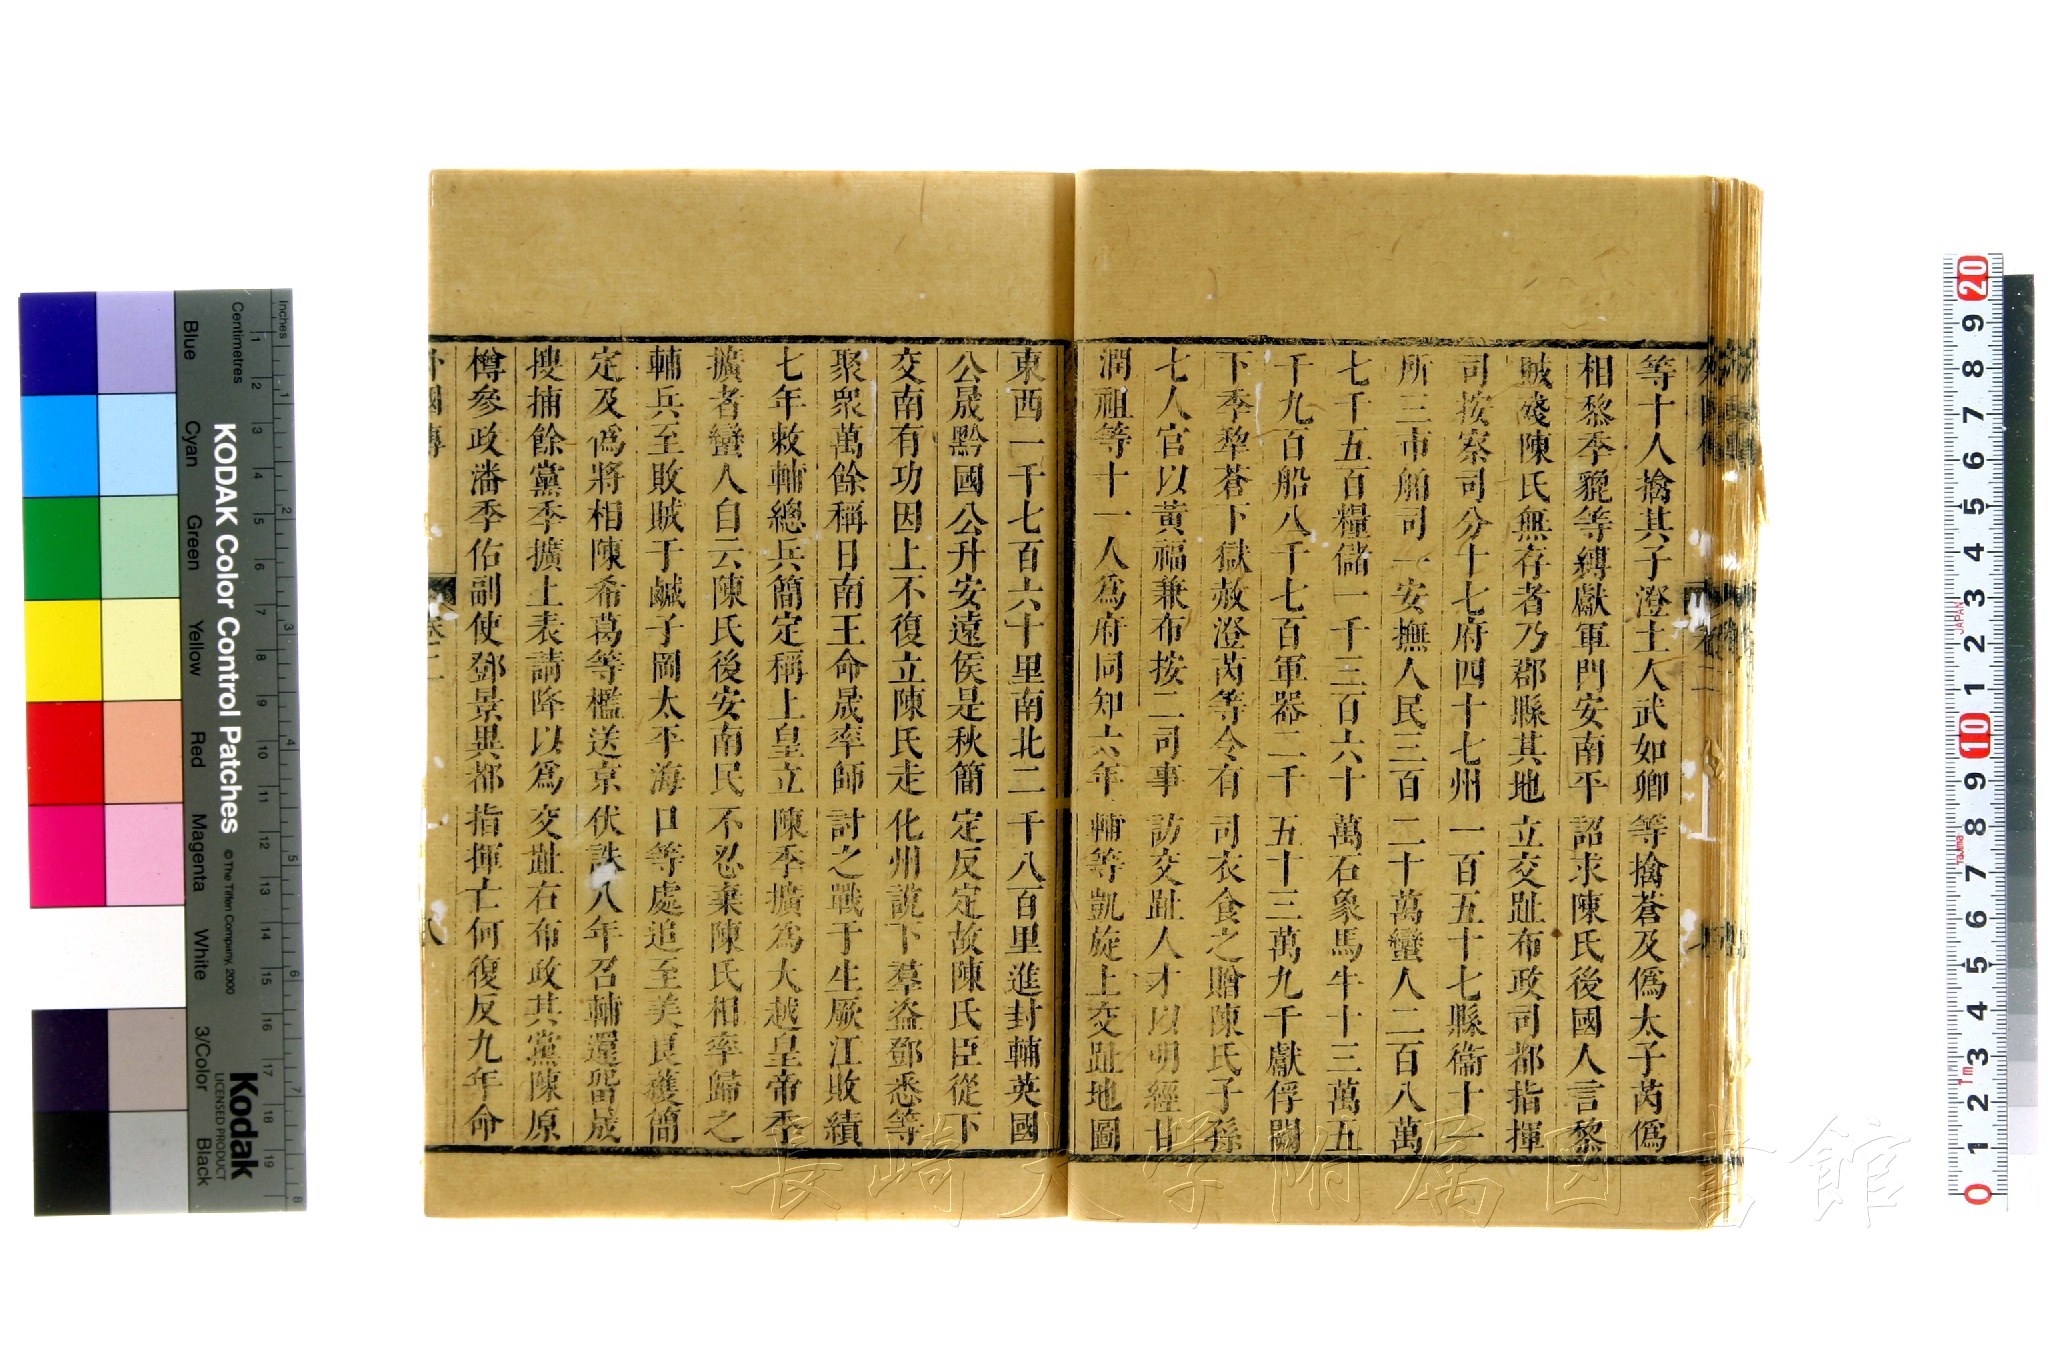 等十人擒其子澄土人武如卿等擒蒼及僞太子芮僞
相黎季貔等縛獻軍門安南平詔求陳氏後國人言黎
賊殘陳氏無存者乃郡縣其地立交趾布政司都指揮
司按察司分十七府四十七州一百五十七縣衞十一
所三市舶司一安撫人民三百二十萬蠻人二百八萬
七千五百糧儲一千三百六十萬石象馬牛十三萬五
千九百船八千七百軍器二千五十三萬九千獻俘闕
下季犂蒼下獄赦澄芮等令有司衣食之贈陳氏子孫
七人官以黃福兼布按二司事訪交趾人才以明經甘
潤祖等十一人爲府同知六年輔等凱旋上交趾地圖
東西一千七百六十里南北二千八百里進封輔英國
公晟黔國公升安遠侯是秋簡定反定故陳氏臣從下
交南有功因上不復立陳氏走化州說下羣盜鄧悉等
聚衆萬餘稱日南王命晟率師討之戰于生厥江敗績
七年敕輔總兵簡定稱上皇立陳季擴為大越皇帝季
擴者蠻人自云陳氏後安南民不忍棄陳氏相率歸之
輔兵至敗賊于鹹子岡太平海口等處追至美良獲簡
定及僞將相陳希葛等檻送京伏誅八年召輔還留晟
搜捕餘黨季擴上表請降以爲交趾右布政其黨陳原
樽參政潘季佑副使鄧景異都指揮亡何復反九年命
外國傳
卷二
八
KODAK Color Control Patches
© The Tiffen Company, 2000
Kodak
LICENSED PRODUCT
Inches
Centimetres
Blue
Cyan
Green
Yellow
Red
Magenta
White
3/Color
Black
長崎大学附属図書館
JAPAN
Tajima
1m